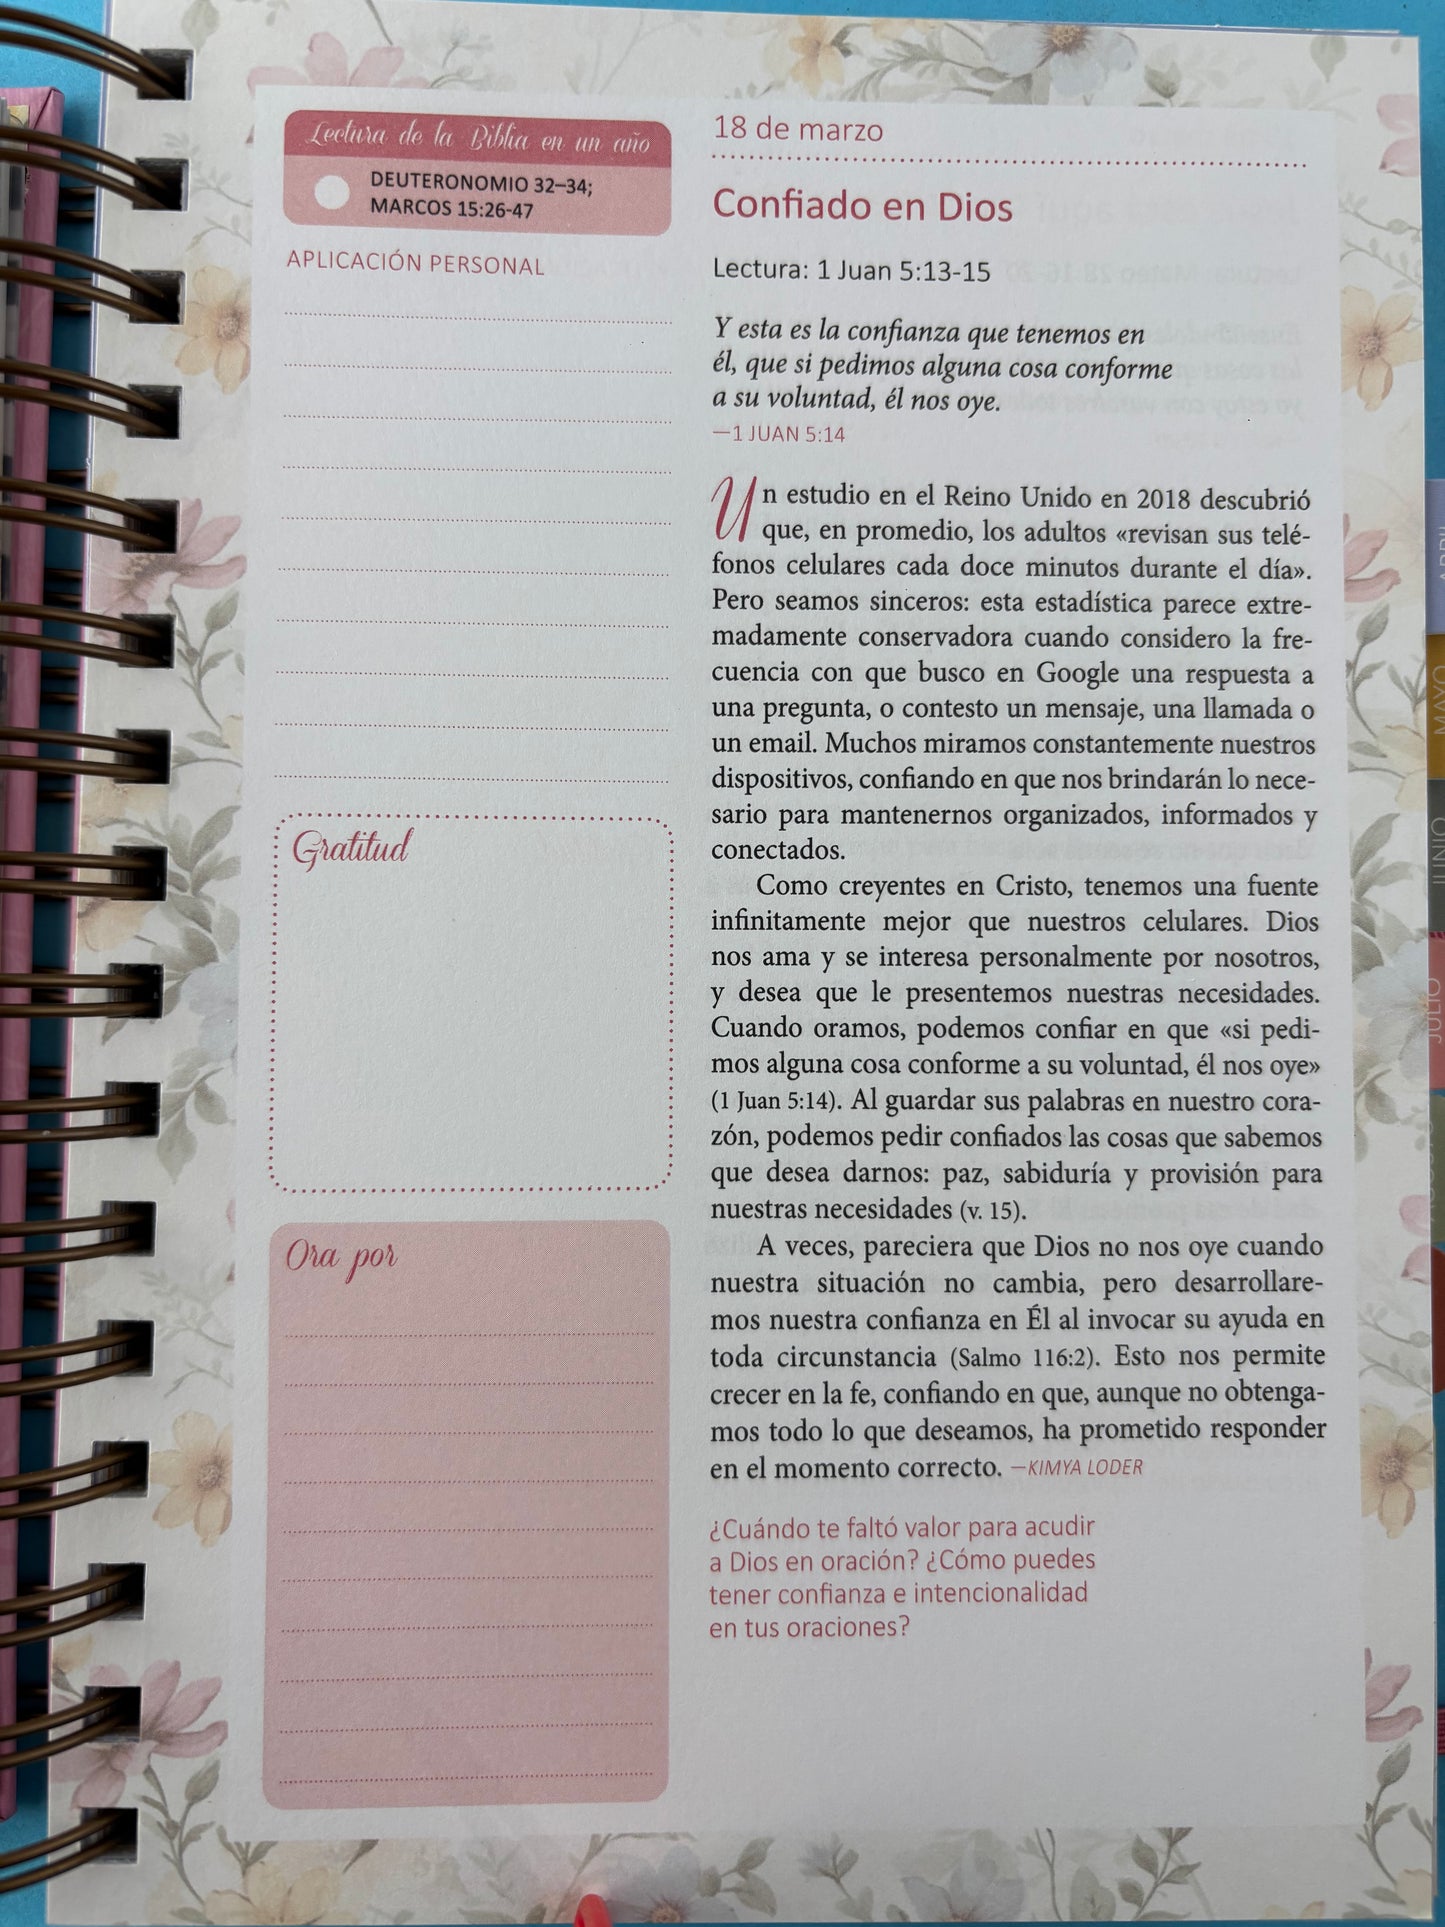 Lectura de la Biblia en un año
DEUTERONOMIO 32–34;
MARCOS 15:26-47
APLICACIÓN PERSONAL
Gratitud
Ora por
18 de marzo
Confiado en Dios
Lectura: 1 Juan 5:13-15
Y esta es la confianza que tenemos en
él, que si pedimos alguna cosa conforme
a su voluntad, él nos oye.
—1 JUAN 5:14
Un estudio en el Reino Unido en 2018 descubrió
que, en promedio, los adultos «revisan sus telé-
fonos celulares cada doce minutos durante el día».
Pero seamos sinceros: esta estadística parece extre-
madamente conservadora cuando considero la fre-
cuencia con que busco en Google una respuesta a
una pregunta, o contesto un mensaje, una llamada o
un email. Muchos miramos constantemente nuestros
dispositivos, confiando en que nos brindarán lo nece-
sario para mantenernos organizados, informados y
conectados.
Como creyentes en Cristo, tenemos una fuente
infinitamente mejor que nuestros celulares. Dios
nos ama y se interesa personalmente por nosotros,
y desea que le presentemos nuestras necesidades.
Cuando oramos, podemos confiar en que «si pedi-
mos alguna cosa conforme a su voluntad, él nos oye»
(1 Juan 5:14). Al guardar sus palabras en nuestro cora-
zón, podemos pedir confiados las cosas que sabemos
que desea darnos: paz, sabiduría y provisión para
nuestras necesidades (v. 15).
A veces, pareciera que Dios no nos oye cuando
nuestra situación no cambia, pero desarrollare-
mos nuestra confianza en Él al invocar su ayuda en
toda circunstancia (Salmo 116:2). Esto nos permite
crecer en la fe, confiando en que, aunque no obtenga-
mos todo lo que deseamos, ha prometido responder
en el momento correcto. —KIMYA LODER
¿Cuándo te faltó valor para acudir
a Dios en oración? ¿Cómo puedes
tener confianza e intencionalidad
en tus oraciones?
ABRIL
MAYO
JUNIO
JULIO